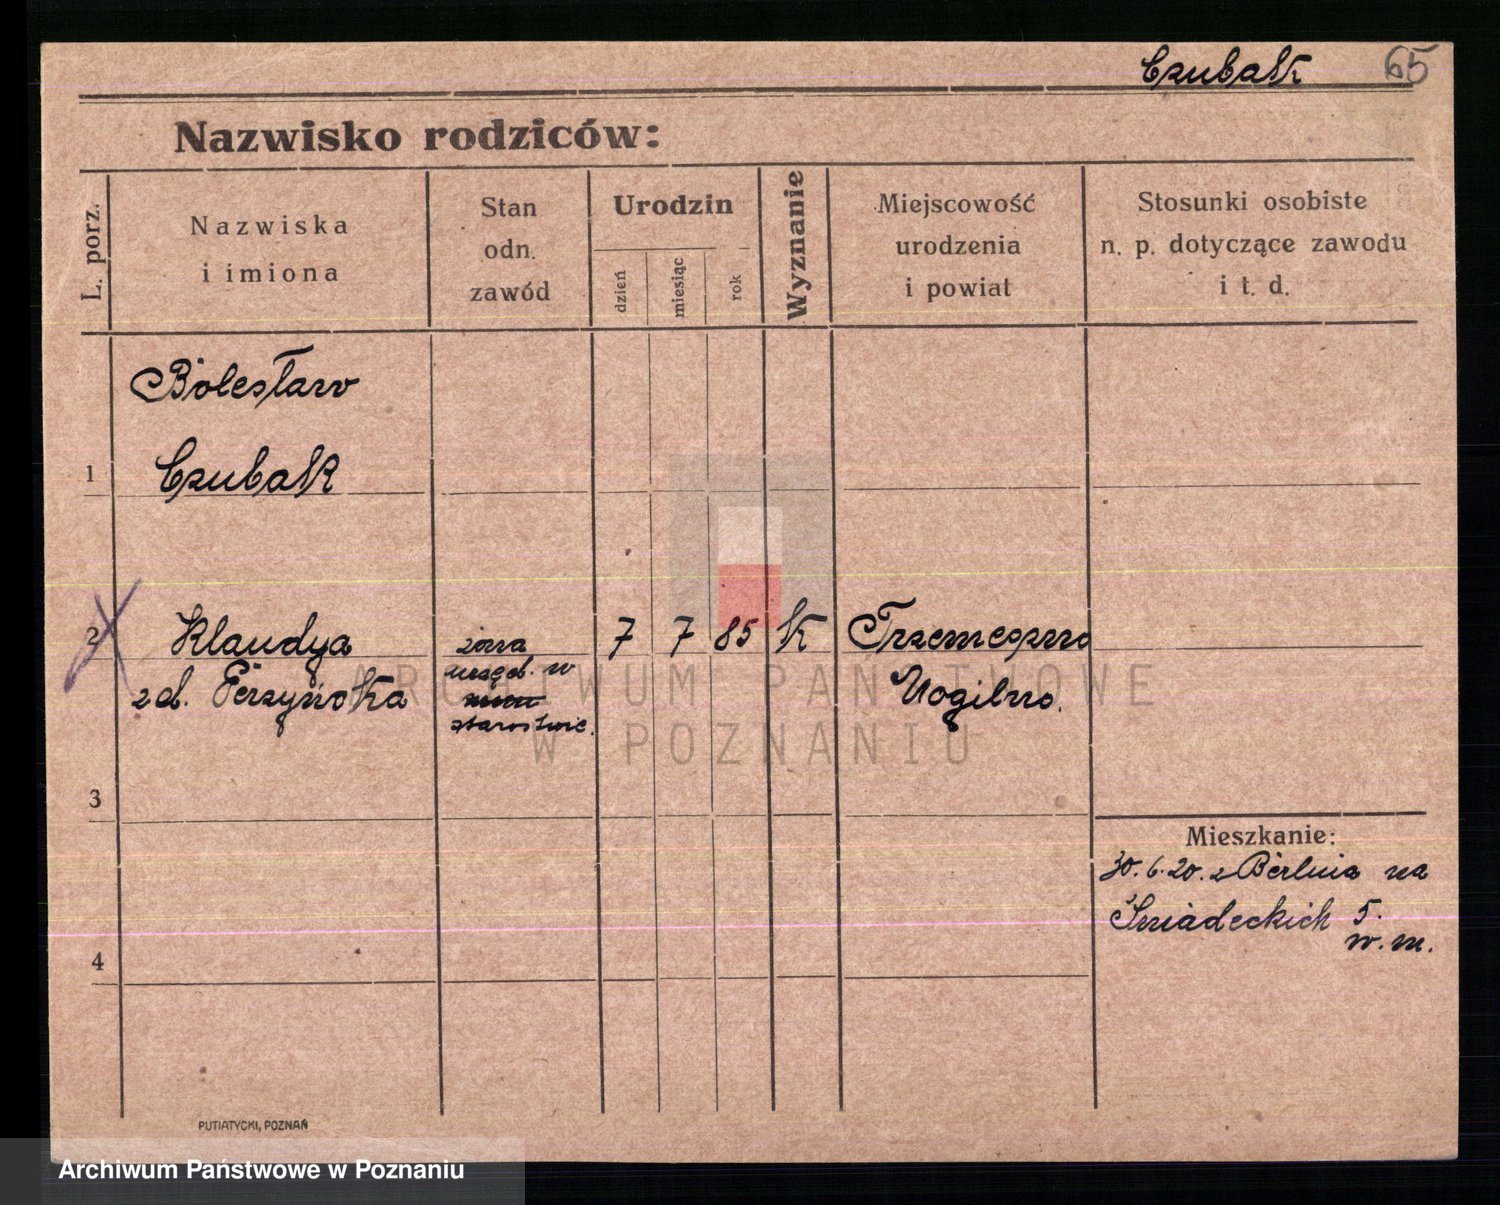 Czubak 65
Nazwisko rodziców:
L. porz.
Nazwiska
i imiona
Stan
odn.
zawód
Urodzin
dzień
miesiąc
rok
Wyznanie
Miejscowość
urodzenia
i powiat
Stosunki osobiste
n. p. dotyczące zawodu
i t. d.
Bolesław
1 Czubak
2 Klaudya żona 7 7 85 K Trzemeszno
zd. Perzyńska urzęd. w Mogilno.
starostwie.
3
Mieszkanie:
30. 6. 20. z Berlina na
Śniadeckich 5.
w. m.
4
PUTIATYCKI, POZNAŃ
ARCHIWUM PAŃSTWOWE
W POZNANIU
Archiwum Państwowe w Poznaniu